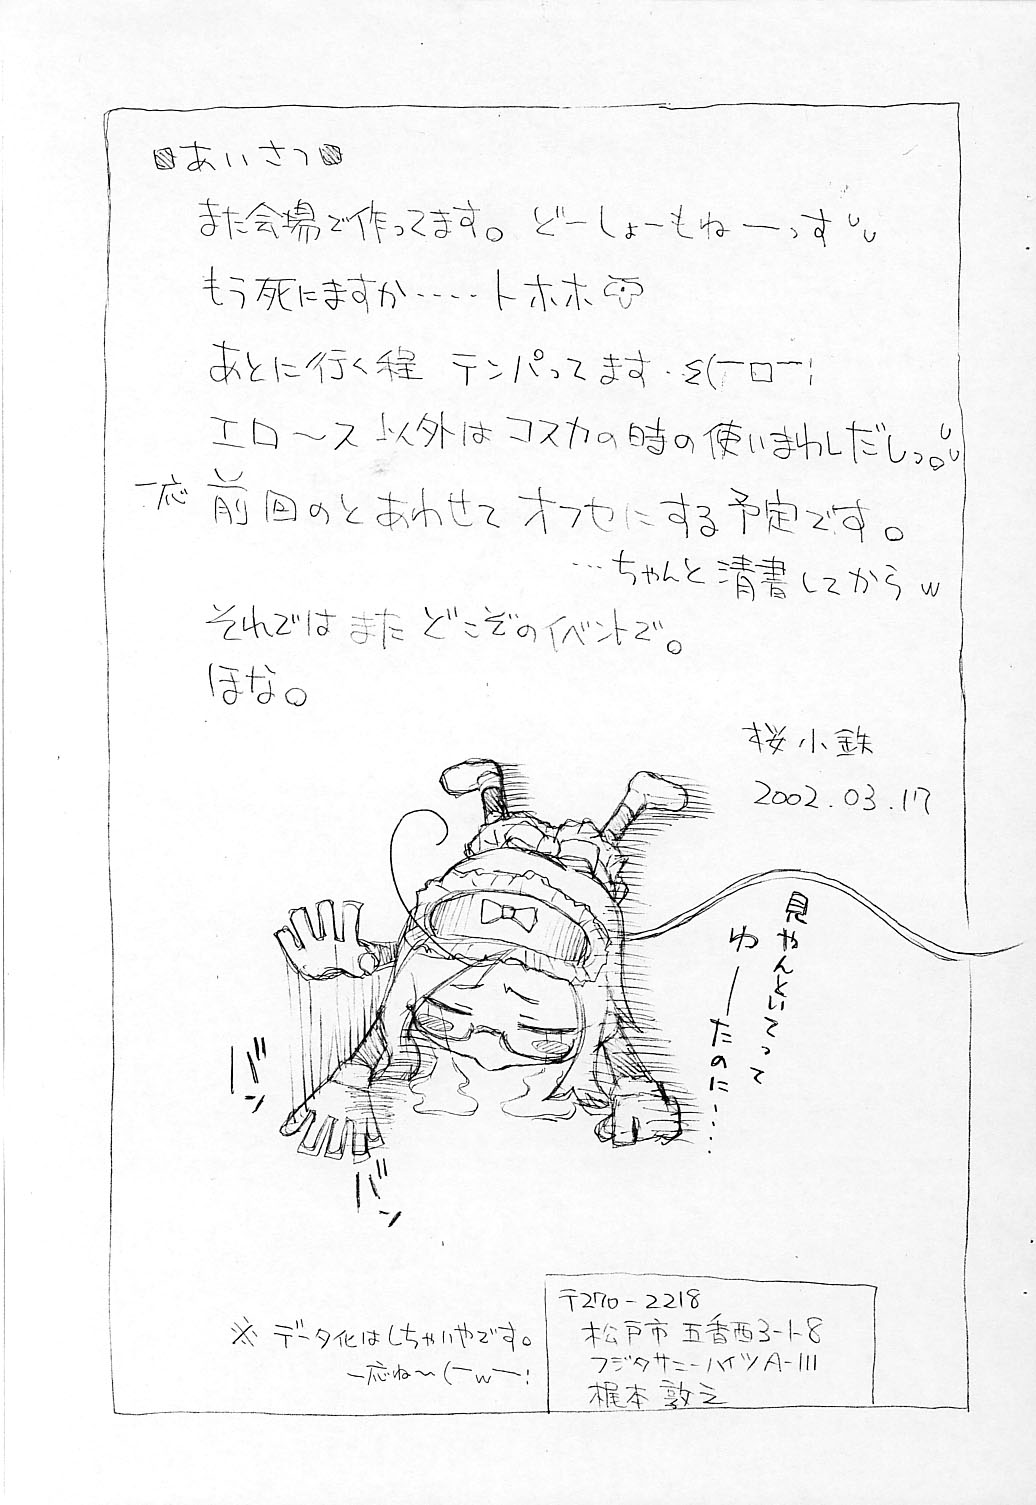 あいさつ
また会場で作ってます。どーしょーもねーっす
もう死にますか‥‥‥トホホ
あとに行く程 テンパってます・Σ(￣ロ￣;
エロ～ス以外はコスカの時の使いまわしだしっ。
一応 前回のとあわせてオフセにする予定です。
…ちゃんと清書してからw
それではまたどこぞのイベントで。
ほな。
桜小鉄
2002.03.17
見やんといてって
ゆーたのに‥‥
バン
バン
※データ化はしちゃいやです。
一応ね～(￣w￣;
〒270-2218
松戸市五香西3-1-8
フジタサニーハイツA-111
梶本敦之